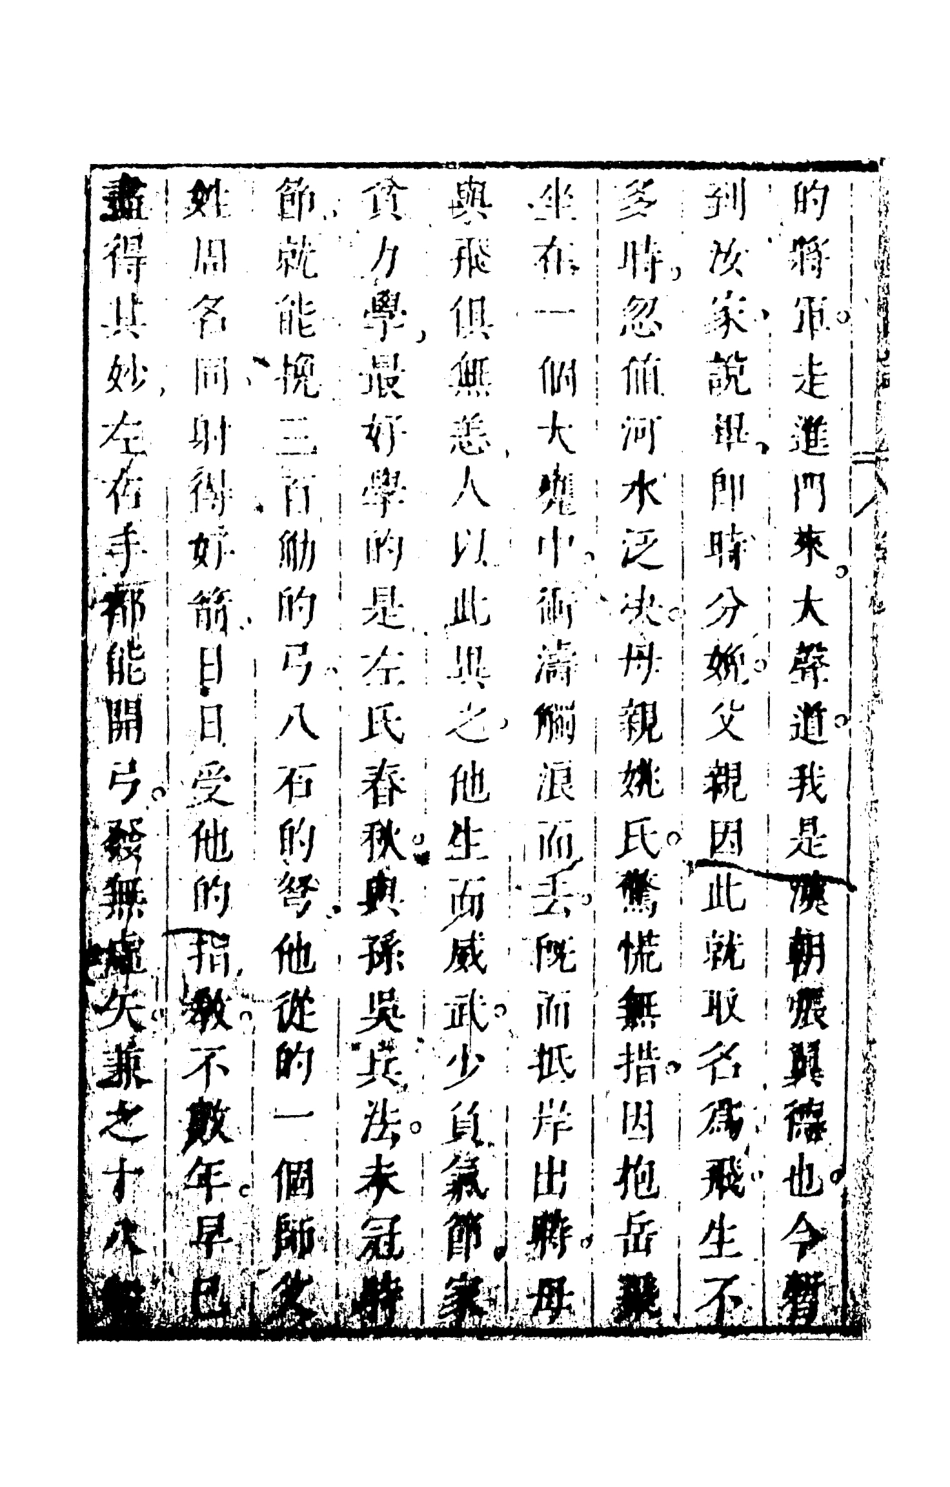 的將軍走進門來大聲道我是漢朝張翼德也今暫
到汝家說畢即時分娩父親因此就取名爲飛生不
多時忽值河水泛決母親姚氏驚慌無措因抱岳飛
坐在一個大甕中衝濤觸浪而去既而抵岸出蔣母
與飛俱無恙人以此異之他生而威武少負氣節家
貧力學最好學的是左氏春秋與孫吳兵法未冠時
節就能挽三百觔的弓八石的弩他從的一個師父
姓周名同射得好箭日日受他的指教不數年早已
盡得其妙左右手都能開弓發無虛矢兼之十八般